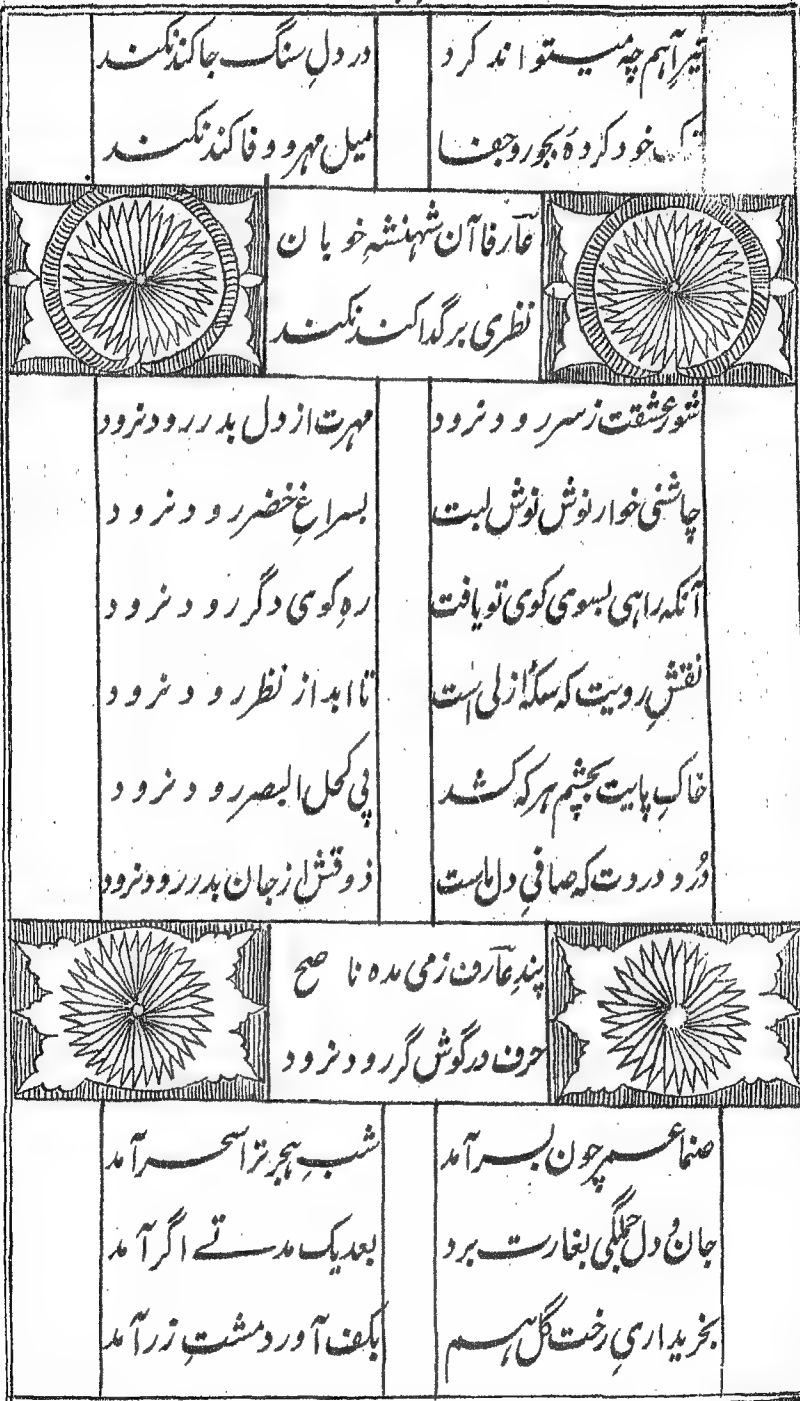 تیرِ آهم چه میتواند کرد
در دلِ سنگ جا کند نکند
خود کردهٔ بجور و جفا
میل مهر و وفا کند نکند
عارفا آن شهنشهِ خوبان
نظری بر گدا کند نکند
شورِ عشقت ز سر رود نرود
مهرت از دل بدر رود نرود
چاشنی خوار نوش نوش لبت
بسراغِ خضر رود نرود
آنکه راهی بسوی کوی تو یافت
رهِ کوی دگر رود نرود
نقشِ رویت که سکهٔ ازلی است
تا ابد از نظر رود نرود
خاکِ پایت بچشم هر که کشد
پی کحل البصر رود نرود
دُرد دردت که صافیِ دل ماست
ذوقش از جان بدر رود نرود
پندِ عارف ز می مده ناصح
حرف در گوش گر رود نرود
صنما عمر چون بسر آمد
شبِ هجر ترا سحر آمد
جان و دل جملگی بغارت برد
بعد یک مدتے اگر آمد
بخریداریِ رخت گل هم
بکف آورد مشتِ زر آمد